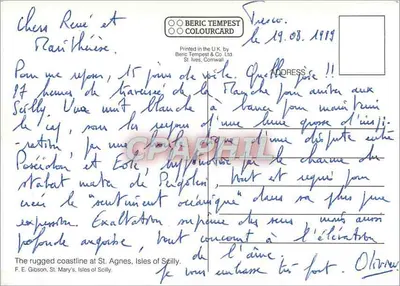 Chers René et
Marithérèse.
BERIC TEMPEST
COLOURCARD
Printed in the U.K. by
Beric Tempest & Co. Ltd
St. Ives, Cornwall
Tresco.
le 19.08.1989
ADDRESS
Pour me reposer, 15 jours de voile. Quelle joie !!
17 heures de traversée de la Manche pour arriver aux
Scilly. Une nuit blanche à barrer pour maintenir
le cap, sous les
d'une lune
d'une dispute entre
Poséidon et Eole, le charme du
stabat mater de Pergolèse, tout est requis pour
créer le "sentiment océanique" dans sa plus pure
expression. Exaltation suprême des sens mais aussi
profonde angoisse, tout concourt à l'élévation
de l'âme.
Je vous embrasse très fort. Olivier
GRAPHTL
The rugged coastline at St. Agnes, Isles of Scilly.
F. E. Gibson, St. Mary's, Isles of Scilly.